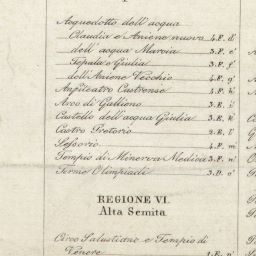 Acquedotto dell'acqua
Claudia e Aniene nuovo 4.F. d'
dell'acqua Marcia 5.F. e'
Tepula e Giulia 3.F. f'
dell'Aniene Vecchio 4.F. g'
Anfiteatro Castrense 4.F. h'
Arco di Gallieno 3.E. i'
Castello dell'acqua Giulia 3.E. k'
Castro Pretorio 2.E. l'
Sessorio 4.F. m'
Tempio di Minerva Medica 3.F. n'
Terme Olimpiadi 3.D. o'
REGIONE VI.
Alta Semita
Circo Salustiano e Tempio di
Venere